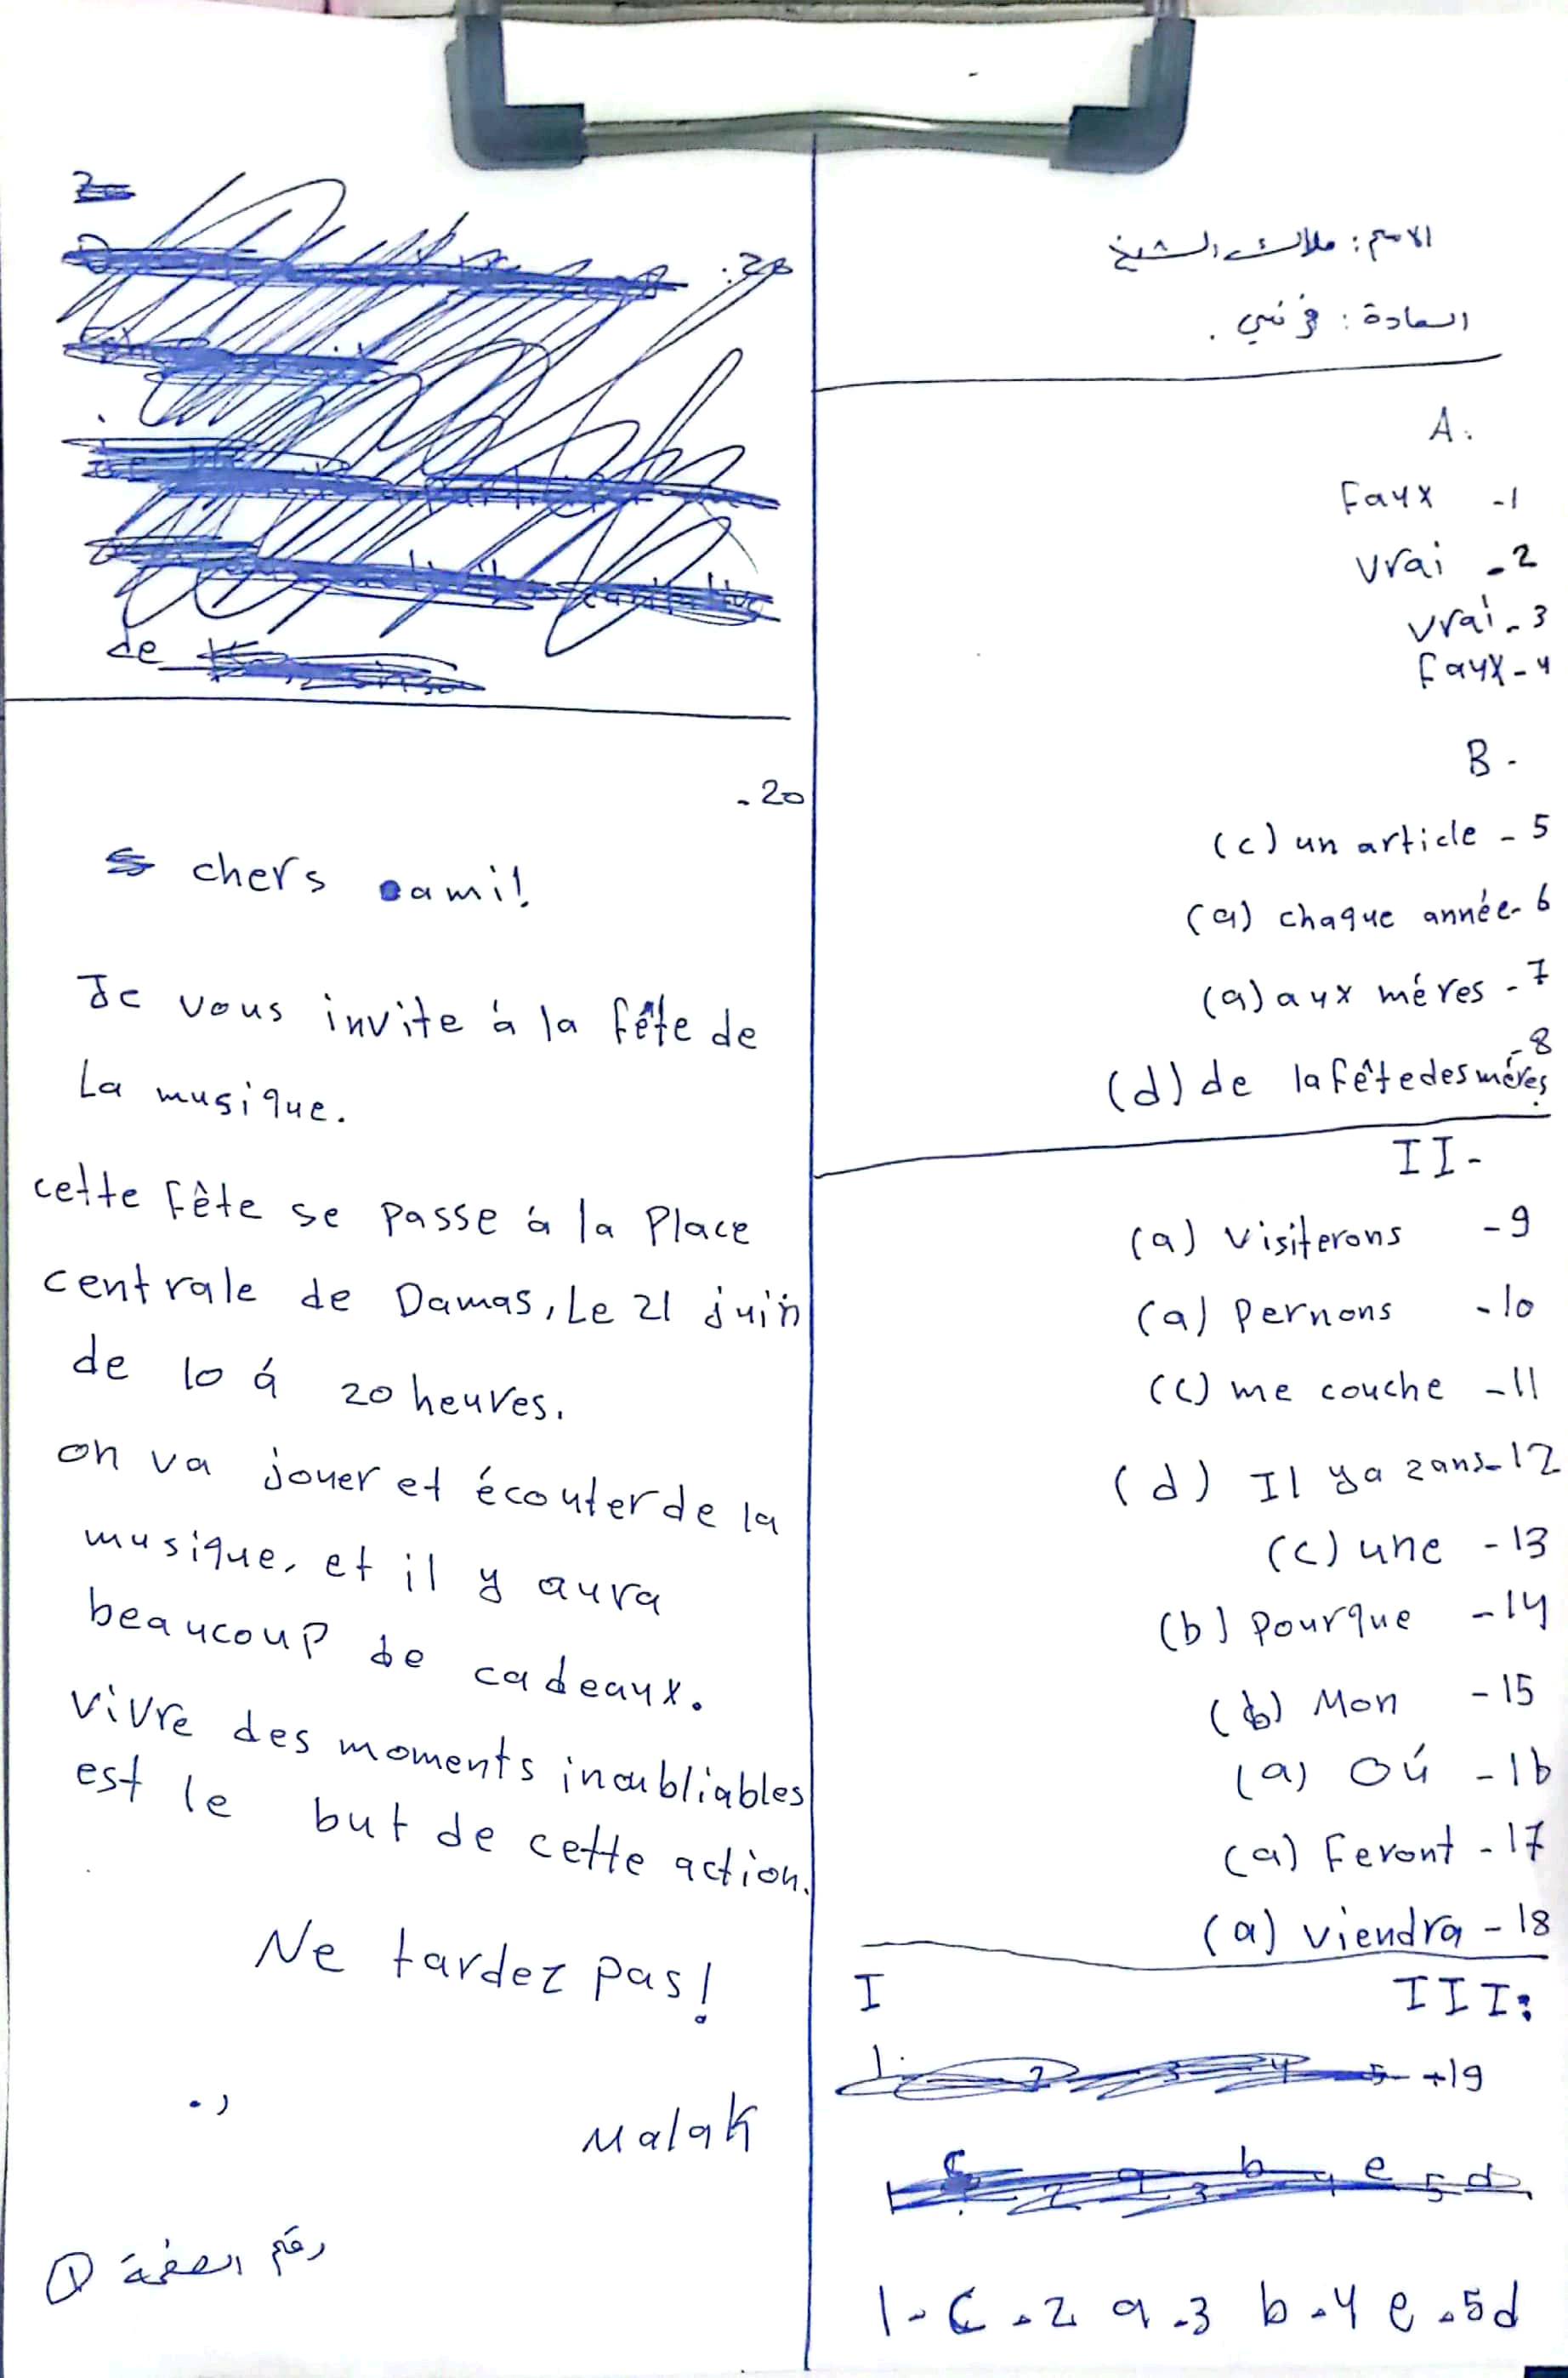 الاسم: ملاك الشيخ
المادة: فرنسي.
A.
Faux -1
vrai -2
vrai -3
Faux -4
B-
(c) un article - 5
(a) chaque année - 6
(a) aux méres - 7
(d) de la fête des méres - 8
II-
(a) visiterons - 9
(a) Pernons - 10
(c) me couche - 11
(d) Il ya 2 ans - 12
(c) une - 13
(b) pourque - 14
(b) Mon - 15
(a) Oú - 16
(a) Feront - 17
(a) viendra - 18
I III:
19
1- c . 2 a . 3 b . 4 e . 5 d
de
. 20
chers ami!
Je vous invite à la fête de
La musique.
cette fête se passe à la Place
centrale de Damas, Le 21 juin
de 10 á 20 heures.
on va jouer et écouter de la
musique, et il y aura
beaucoup de cadeaux.
vivre des moments inoubliables
est le but de cette action.
Ne tardez pas!
Malak
رقم الصفحة ①